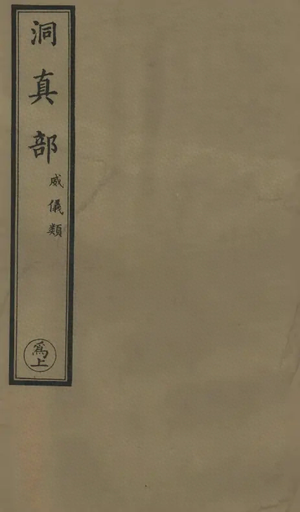 洞真部
威儀類
爲上